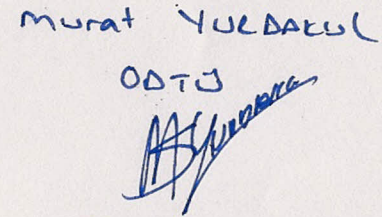 Murat YURDAKUL
ODTÜ